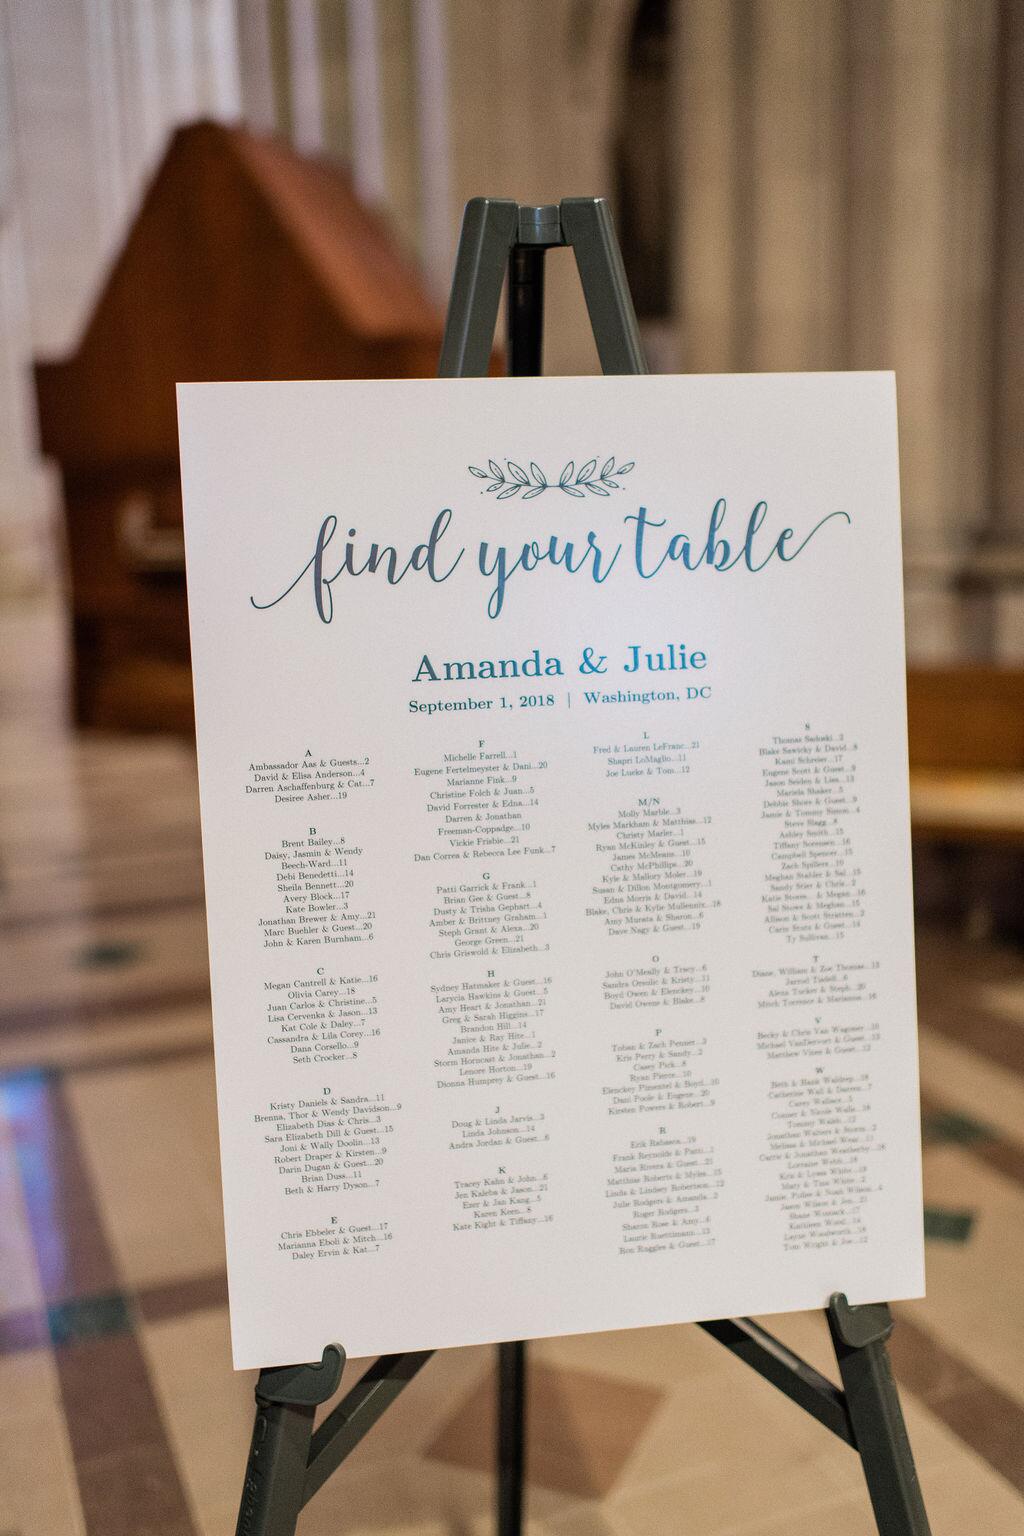 find your table
Amanda & Julie
September 1, 2018 | Washington, DC
A
Ambassador Aas & Guests...2
David & Elisa Anderson...4
Darren Aschaffenburg & Cat...7
Desiree Asher...19
B
Brent Bailey...8
Daisy, Jasmin & Wendy
Beech-Ward...11
Debi Benedetti...14
Sheila Bennett...20
Avery Block...17
Kate Bowler...3
Jonathan Brewer & Amy...21
Marc Buehler & Guest...20
John & Karen Burnham...6
C
Megan Cantrell & Katie...16
Olivia Carey...18
Juan Carlos & Christine...5
Lisa Cervenka & Jason...13
Kat Cole & Daley...7
Cassandra & Lila Corey...16
Dana Corsello...9
Seth Crocker...8
D
Kristy Daniels & Sandra...11
Brenna, Thor & Wendy Davidson...9
Elizabeth Dias & Chris...3
Sara Elizabeth Dill & Guest...15
Joni & Wally Doolin...13
Robert Draper & Kirsten...9
Darin Dugan & Guest...20
Brian Duss...11
Beth & Harry Dyson...7
E
Chris Ebbeler & Guest...17
Marianna Eboli & Mitch...16
Daley Ervin & Kat...7
F
Michelle Farrell...1
Eugene Fertelmeyster & Dani...20
Marianne Fink...9
Christine Folch & Juan...5
David Forrester & Edna...14
Darren & Jonathan
Freeman-Coppadge...10
Vickie Frisbie...21
Dan Correa & Rebecca Lee Funk...7
G
Patti Garrick & Frank...1
Brian Gee & Guest...8
Dusty & Trisha Gephart...4
Amber & Brittney Graham...1
Steph Grant & Alexa...20
George Green...21
Chris Griswold & Elizabeth...3
H
Sydney Hatmaker & Guest...16
Larycia Hawkins & Guest...5
Amy Heart & Jonathan...21
Greg & Sarah Higgins...17
Brandon Hill...14
Janice & Ray Hite...1
Amanda Hite & Julie...2
Storm Horncast & Jonathan...2
Lenore Horton...19
Dionna Humprey & Guest...16
J
Doug & Linda Jarvis...3
Linda Johnson...14
Andra Jordan & Guest...6
K
Tracey Kahn & John...6
Jen Kaleba & Jason...21
Ezer & Jan Kang...5
Karen Keen...8
Kate Kight & Tiffany...16
L
Fred & Lauren LeFranc...21
Shapri LoMaglio...11
Joe Lueke & Tom...12
M/N
Molly Marble...3
Myles Markham & Matthias...12
Christy Marler...1
Ryan McKinley & Guest...15
James McMeans...10
Cathy McPhillips...20
Kyle & Mallory Moler...19
Susan & Dillon Montgomery...1
Edna Morris & David...14
Blake, Chris & Kylie Mullennix...18
Amy Murata & Sharon...6
Dave Nagy & Guest...19
O
John O'Meally & Tracy...6
Sandra Orsulic & Kristy...11
Boyd Owen & Elenckey...10
David Owens & Blake...8
P
Toban & Zach Penner...3
Kris Perry & Sandy...2
Casey Pick...8
Ryan Pierce...10
Elenckey Pimentel & Boyd...10
Dani Poole & Eugene...20
Kirsten Powers & Robert...9
R
Erik Rabasca...19
Frank Reynolds & Patti...1
Maria Rivera & Guest...21
Matthias Roberts & Myles...15
Linda & Lindsey Robertson...12
Julie Rodgers & Amanda...2
Roger Rodgers...3
Sharon Rose & Amy...6
Laurie Ruettimann...13
Ron Ruggles & Guest...17
S
Thomas Sadoski...2
Blake Sawicky & David...8
Kami Schreier...17
Eugene Scott & Guest...9
Jason Seiden & Lisa...13
Mariela Shaker...5
Debbie Shore & Guest...9
Jamie & Tommy Simon...4
Steve Slagg...8
Ashley Smith...15
Tiffany Sorensen...16
Campbell Spencer...15
Zach Spillers...10
Meghan Stabler & Sal...15
Sandy Stier & Chris...2
Katie & Megan...16
Sal Stows & Meghan...15
Allison & Scott Stritten...2
Carin Stutz & Guest...14
Ty Sullivan...15
T
Diane, William & Zoe Thomas...13
Jarrod Tisdell...6
Alexa Tucker & Steph...20
Mitch Torrence & Marianna...16
V
Becky & Chris Van Wagoner...10
Michael VanDervort & Guest...13
Matthew Vines & Guest...12
W
Beth & Hank Waldrep...18
Catherine Wall & Darren...7
Carey Wallace...5
Conner & Nicole Walls...18
Tommy Walsh...12
Jonathan Walters & Storm...2
Melissa & Michael Wear...11
Carrie & Jonathan Weatherby...16
Lorraine Webb...18
Kris & Lyssa White...19
Mary & Tina White...2
Jamie, & Noah Wilson...4
Jason Wilson & Jen...21
Shane Womack...17
Kathleen Wood...14
Layne Woolworth...18
Tom Wright & Joe...12